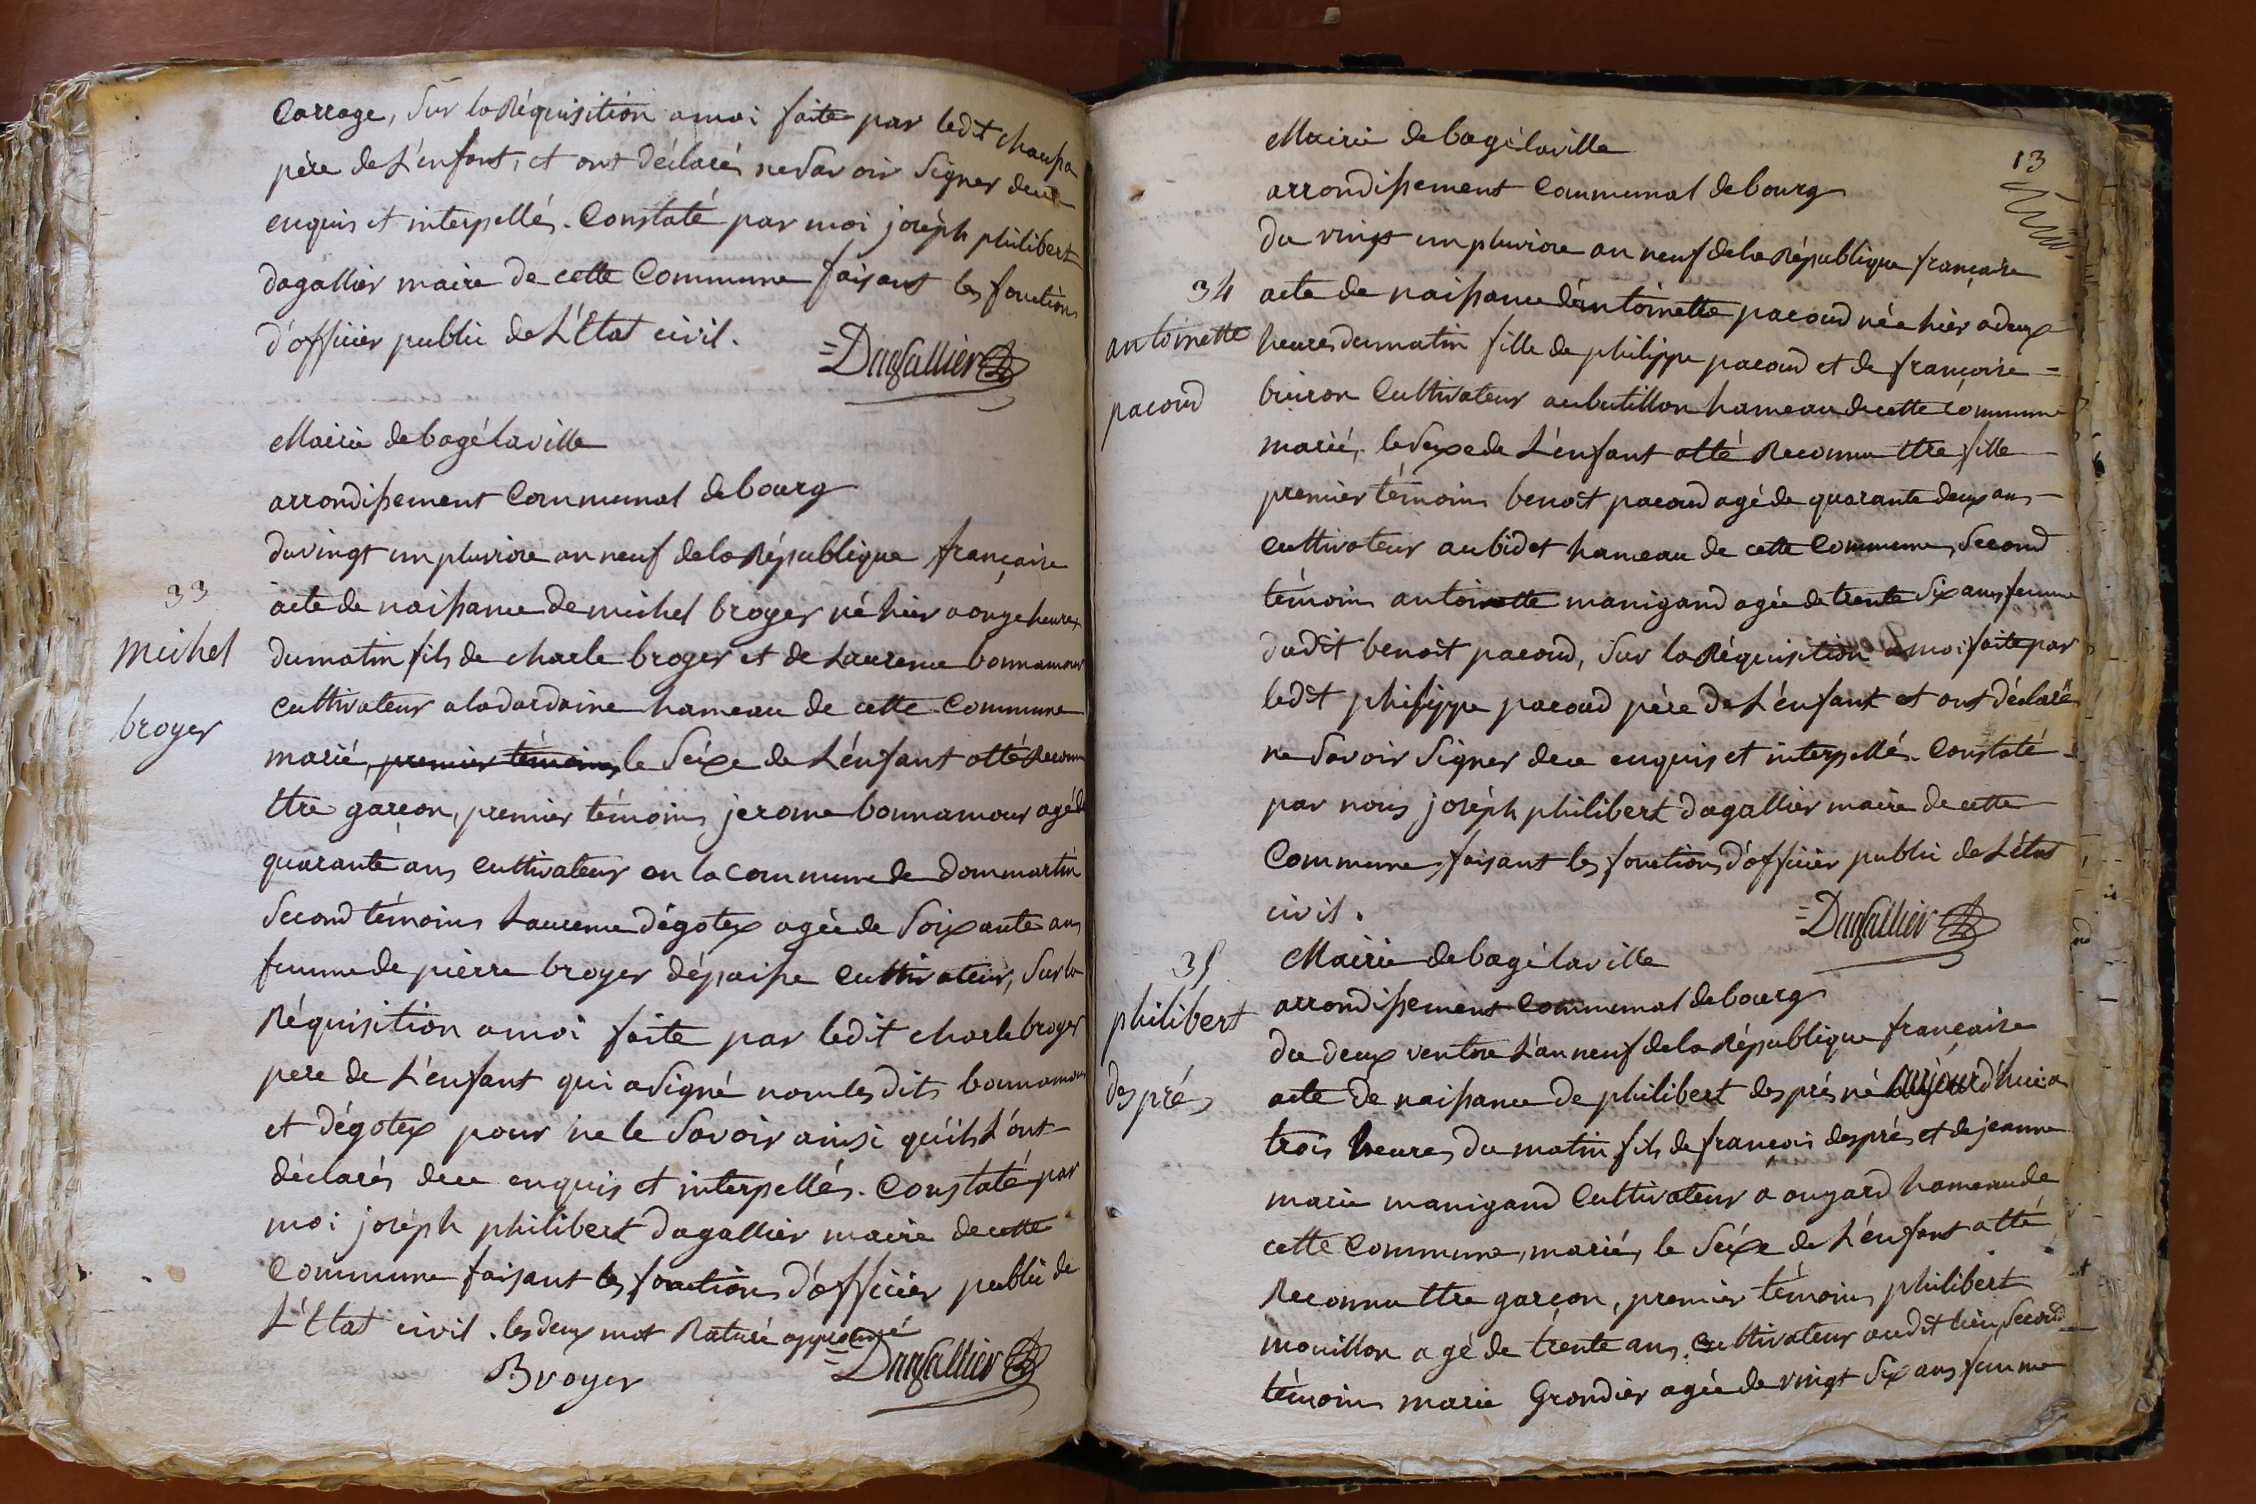 Carrage, Sur la Réquisition a moi faite par ledit chaupa
père de L'enfant, et ont déclarés ne Savoir Signer deux
enquis et interpellés. Constaté par moi joséph philibert
dagallier maire de cette Commune faisant les fonctions
d'officier public de L'Etat civil.
Dagallier
Mairie de bagé laville
arrondissement Communal de bourg
du vingt un pluviose an neuf de la République française
33
michel
broyer
acte de naissance de michel broyer né hier a onze heures
du matin fils de charle broyer et de Laurence bonnamour
Cultivateur a la dardaine hameau de cette Commune
marié, premier témoins le Séixe de L'énfant atté Reconnu
ttre garçon, premier témoins jerome bonnamour agé de
quarante ans Cultivateur en la Commune de dommartin
Second témoins Laurence dégotex agée de Soixante ans
femme de pièrre broyer dépaisse Cultivateur, Sur la
Réquisition a moi faite par ledit charle broyer
pere de L'énfant qui a Signé non les dits bonnamour
et dégotex pour ne le Savoir ainsi quils L'ont
déclarés deux enquis et interpellés. Constaté par
moi joséph philibert dagallier maire de cette
Commune faisant les fonctions d'officier public de
L'Etat civil. les deux mot Raturé approuvé
Broyer
Dagallier
13
Mairie de bagé laville
arrondissement Communal de bourg
du vingt un pluviose an neuf de la République française
34
antoinette
pacoud
acte de naissance d'éntoinette pacoud née hier a deux
heures du matin fille de philippe pacoud et de françoise
buiron Cultivateur au butillon hameau de cette Commune
marié, le Séxe de L'énfant atté Reconnu ttre fille
premier témoins benoit pacoud agé de quarante deux ans
Cultivateur au bidet hameau de cette Commune, Second
témoins antoinette manigand agée de trente Six ans femme
dudit benoit pacoud, Sur la Réquisition a moi faite par
ledit philippe pacoud père de L'énfant et ont déclaré
ne Savoir Signer deux enquis et interpellé. Constaté
par nous joséph philibert dagallier maire de cette
Commune, faisant les fonctions d'officier public de L'état
civil.
Dagallier
Mairie de bagé laville
35
philibert
després
arrondissement Communal de bourg
du deux ventose L'an neuf de la République française
acte de naissance de philibert des prés né aujourd'hui a
trois heures du matin fils de françois després et de jeanne
marie manigand Cultivateur a augard hameau de
cette Commune, marié, le Séixe de L'énfant atté
Reconnu ttre garçon, premier témoins philibert
mouillon agé de trente ans, Cultivateur audit lieu, Second
témoins marie Grondier agée de vingt Six ans femme